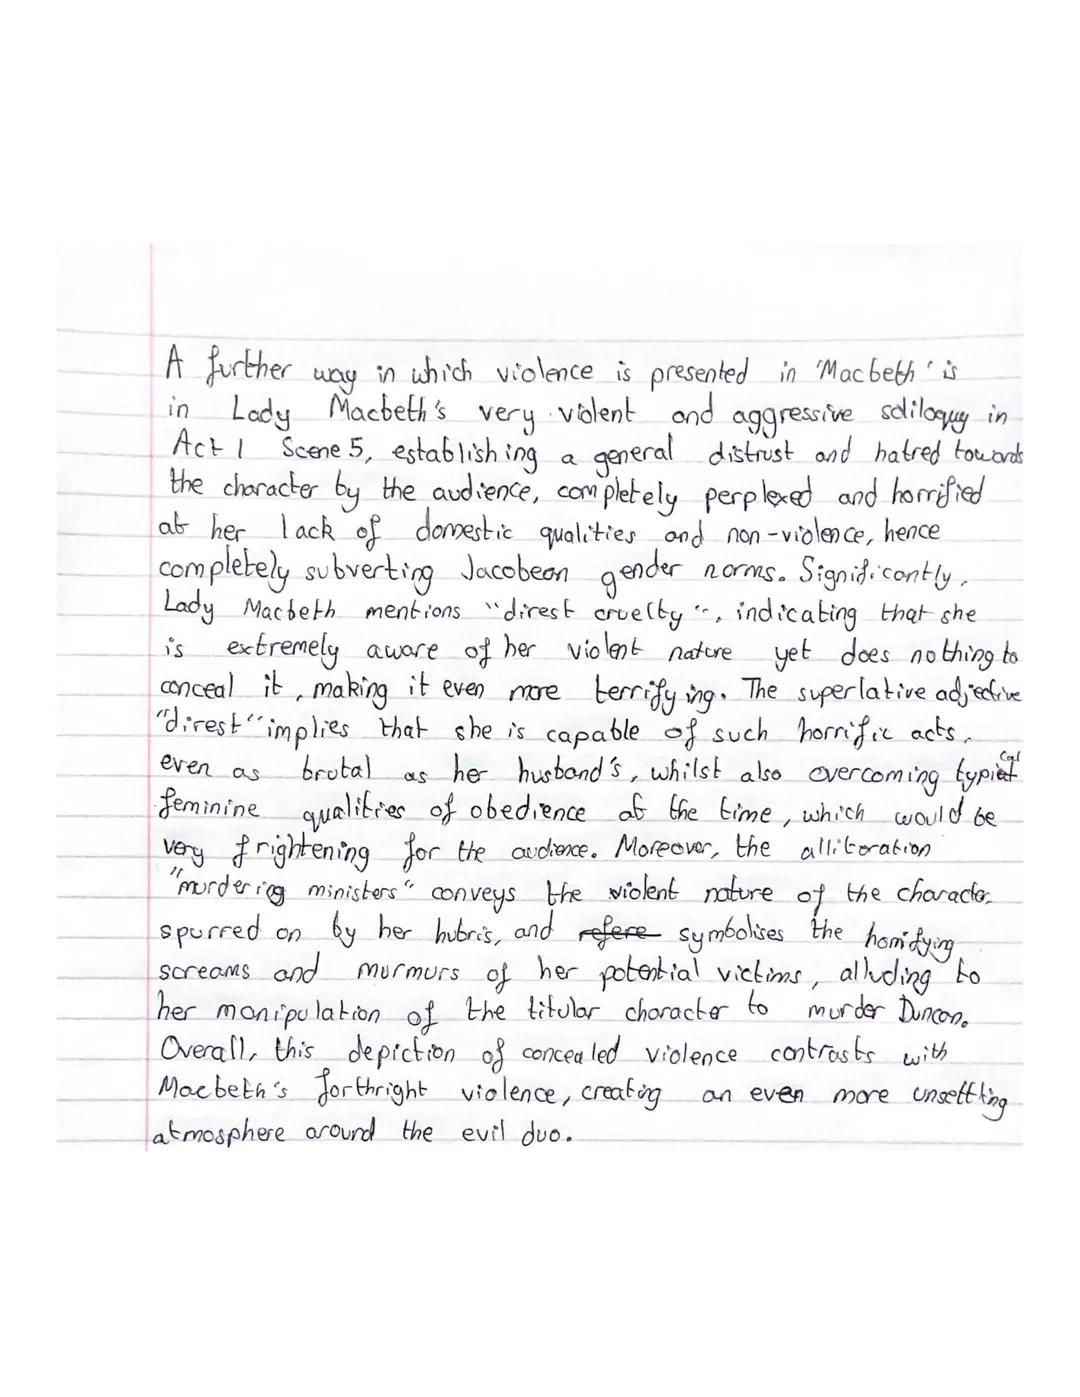 A further way in which violence is presented in 'Macbeth' is
in Lady Macbeth's very violent and aggressive soliloquy in
Act 1 Scene 5, establishing a general distrust and hatred towards
the character by the audience, completely perplexed and horrified
at her lack of domestic qualities and non-violence, hence
completely subverting Jacobean gender norms. Significantly,
Lady Macbeth mentions "direst cruelty", indicating that she
is extremely aware of her violent nature yet does nothing to
conceal it, making it even more terrifying. The superlative adjective
"direst" implies that she is capable of such horrific acts,
even as brutal as her husband's, whilst also overcoming typical
feminine qualities of obedience at the time, which would be
very frightening for the audience. Moreover, the alliteration
"murdering ministers" conveys the violent nature of the character,
spurred on by her hubris, and refere symbolises the horrifying
screams and murmurs of her potential victims, alluding to
her manipulation of the titular character to murder Duncan.
Overall, this depiction of concealed violence contrasts with
Macbeth's forthright violence, creating an even more unsettling
atmosphere around the evil duo.